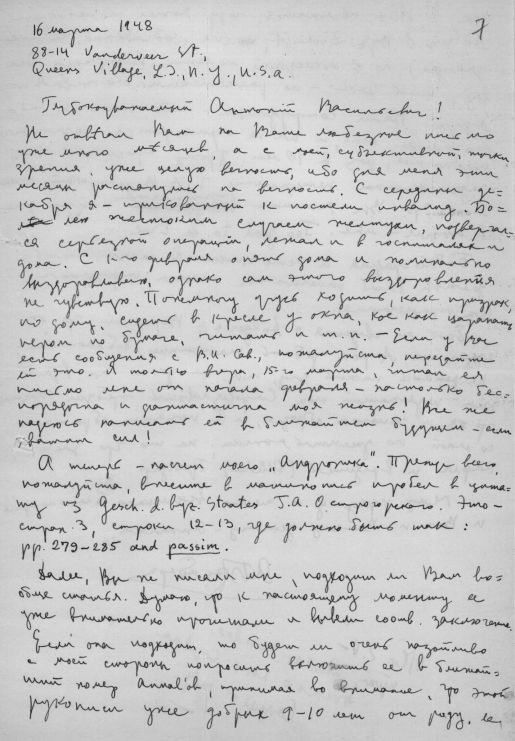 7
16 марта 1948
88-14 Vanderveer St.,
Queens Village, L.I., N.Y., U.S.A.
Глубокоуважаемый Антоній Васильевич!
Не отвѣчал Вам на Ваше любезное письмо
уже много мѣсяцев, а с моей, субъективной, точки
зрения, уже целую вечность, ибо для меня эти
месяцы растянулись на вечность. С середины де-
кабря я – прикованный к постели инвалид. Бо-
лею жестоким случаем желтухи, подвергал-
ся серьезной операціи, лежал и в госпиталях и
дома. С 1-го февраля опять дома и номинально
выздоравливаю, однако сам этого выздоровления
не чувствую. Понемногу учусь ходить, как призрак,
по дому, сидеть в кресле у окна, кое как царапать
пером по бумаге, читать и т.п. – Если у Вас
есть сообщения с В.И. Сав., пожалуйста, передайте
ей это. Я только вчера, 15-го марта, читал ея
письмо мне от начала февраля – настолько бес-
порядочна и фантастична моя жизнь! Все же
надеюсь написать ей в ближайшем будущем – если
хватит сил!
А теперь – насчет моего „Андроника“. Прежде всего,
пожалуйста, внесите в машинопись пробел в цита-
ту из Gesch. d. byz. Staates Г.А. Острогорского. Это –
стран. 3, строки 12-13, где должно быть так:
pp. 279-285 and passim.
Далее, Вы не писали мне, подходит ли Вам во-
обще статья. Думаю, что к настоящему моменту ее
уже внимательно прочитали и вывели соотв. заключение.
Если она подходит, то будет ли очень назойливо
с моей стороны попросить включить ее в ближай-
ший номер Annal'ов, принимая во внимание, что этой
рукописи уже добрых 9-10 лет от роду, ее